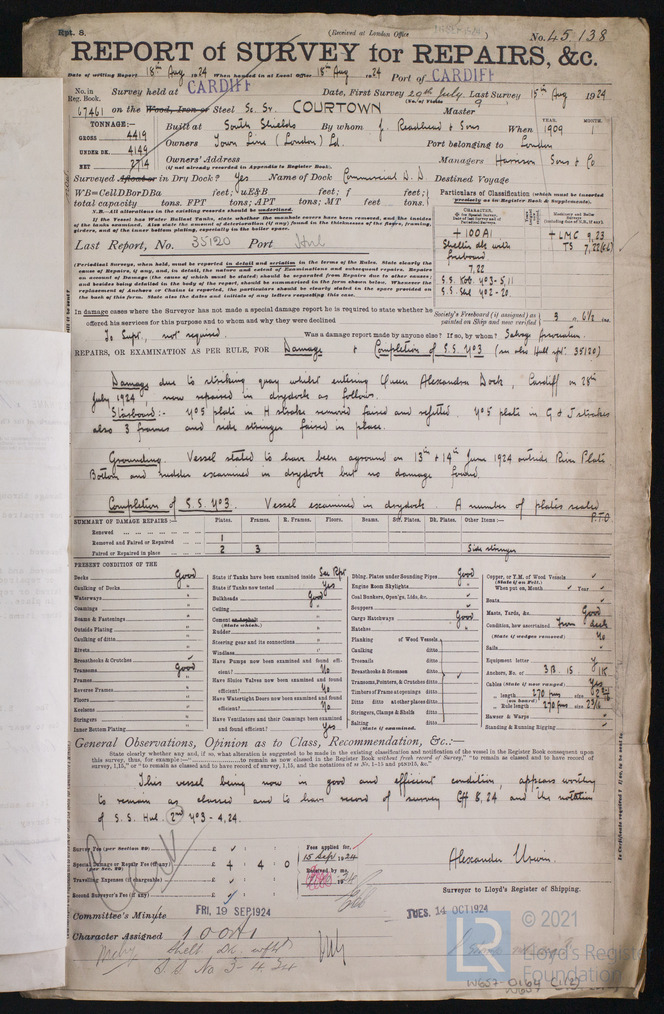 Rpt. 8.
(Received at London Office
No. 45138
REPORT of SURVEY for REPAIRS, &c.
Date of writing Report 18th Aug 1924 When handed in at Local Office 18th Aug 1924 Port of CARDIFF
No. in Reg. Book. Survey held at CARDIFF Date, First Survey 29th July Last Survey 15th Aug 1924
67461 on the Wood, Iron or Steel Sc. Sr. COURTOWN (No. of Visits 9 Master
TONNAGE:—
GROSS 4419
UNDER DK. 4149
NET 2714
Built at South Shields By whom J. Readhead & Sons When 1909 YEAR. MONTH. 1
Owners Town Line (London) Ld. Port belonging to London
Owners' Address Managers Harrison Sons & Co.
(if not already recorded in Appendix to Register Book).
Surveyed Afloat or in Dry Dock? Yes Name of Dock Commercial D.D. Destined Voyage
WB=CellDBorDBa feet; uE&B feet; f feet;
total capacity tons. FPT tons; APT tons; MT feet tons.
N.B.—All alterations in the existing records should be underlined.
Particulars of Classification (which must be inserted precisely as in Register Book & Supplements).
+ 100A1
+ LMC 9,23
freeboard
7,22
S.S. No3-5,11
Last Report, No. 35120 Port Hul
(Periodical Surveys, when held, must be reported in detail and seriatim in the terms of the Rules. State clearly the cause of Repairs, if any, and, in detail, the nature and extent of Examinations and subsequent repairs.
In damage cases where the Surveyor has not made a special damage report he is required to state whether he offered his services for this purpose and to whom and why they were declined
Society's Freeboard (if assigned) as painted on Ship and now verified 3 ft. 6½ ins.
To Supt., not required. Was a damage report made by anyone else? If so, by whom? Salvage Association.
REPAIRS, OR EXAMINATION AS PER RULE, FOR Damage & Completion of S.S. No3 (see also Hull rpt. 35120)
Damage due to striking quay whilst entering Queen Alexandra Dock, Cardiff on 28th
July 1924, now repaired in drydock as follows.
Starboard:- No5 plate in H strake removed faired and refitted. No5 plate in G & J strakes
also 3 frames and side stringer faired in place.
Grounding. Vessel stated to have been aground on 13th & 14th June 1924 outside River Plate
Bottom and rudder examined in drydock but no damage found.
Completion of S.S. No3. Vessel examined in drydock. A number of plates scaled
P.T.O
SUMMARY OF DAMAGE REPAIRS:— Plates. Frames. R. Frames. Floors. Beams. Str. Plates. Dk. Plates. Other Items:—
Renewed
Removed and Faired or Repaired 1
Faired or Repaired in place 2 3 Side stringer
PRESENT CONDITION OF THE
Decks Good
Caulking of Decks "
Waterways "
Coamings "
Beams & Fastenings "
Outside Plating "
Caulking of ditto "
Rivets "
Breasthooks & Crutches "
Transoms Good
Frames "
Reverse Frames "
Floors "
Keelsons "
Stringers "
Inner Bottom Plating "
State if Tanks have been examined inside See Rpt
State if Tanks now tested Yes
Bulkheads Good
Ceiling "
Cement or Asphalt "
(State which.)
Rudder "
Steering gear and its connections "
Windlass "
Have Pumps now been examined and found efficient? No
Have Sluice Valves now been examined and found efficient? No
Have Watertight Doors now been examined and found efficient? No
Have Ventilators and their Coamings been examined and found efficient? Yes
Dblng. Plates under Sounding Pipes Good
Engine Room Skylights "
Coal Bunkers, Open'gs, Lids, &c.
Scuppers
Cargo Hatchways Good
Hatches "
Planking of Wood Vessels
Caulking ditto
Treenails ditto
Breasthooks & Stemson ditto
Transoms, Pointers, & Crutches ditto
Timbers of Frame at openings ditto
Ditto ditto at other places ditto
Stringers, Clamps & Shelfs ditto
Salting ditto
(State if examined.
Copper, or Y.M. of Wood Vessels
(State if on Felt.)
When put on, Month Year
Boats
Masts, Yards, &c. Good
Condition, how ascertained From deck
(State if wedges removed) No
Sails
Equipment letter
Anchors, No. of 3B 1S 1K
Cables (State if now ranged) Yes
" length 270 fms size
(on board)
" Rule length 270 fms size
Hawser & Warps
Standing & Running Rigging
General Observations, Opinion as to Class, Recommendation, &c.:—
This vessel being now in good and efficient condition, appears worthy
to remain as classed and to have record of survey Cff 8,24 and the notation
of S.S. Hul. (2nd) No3-4,24.
Survey Fee (per Section 29) £
Special Damage or Repair Fee (if any) £ 4 4 0
(per Sec. 29)
Travelling Expenses (if chargeable) £
Second Surveyor's Fee (if any) £
Fees applied for,
15 Sep 1924
Received by me,
Alexander Urwin
Surveyor to Lloyd's Register of Shipping.
Committee's Minute FRI, 19 SEP 1924 TUES. 14 OCT 1924
Character Assigned 100A1
LR
© 2021
Lloyd's Register
Foundation
W657-0164 C1(2)